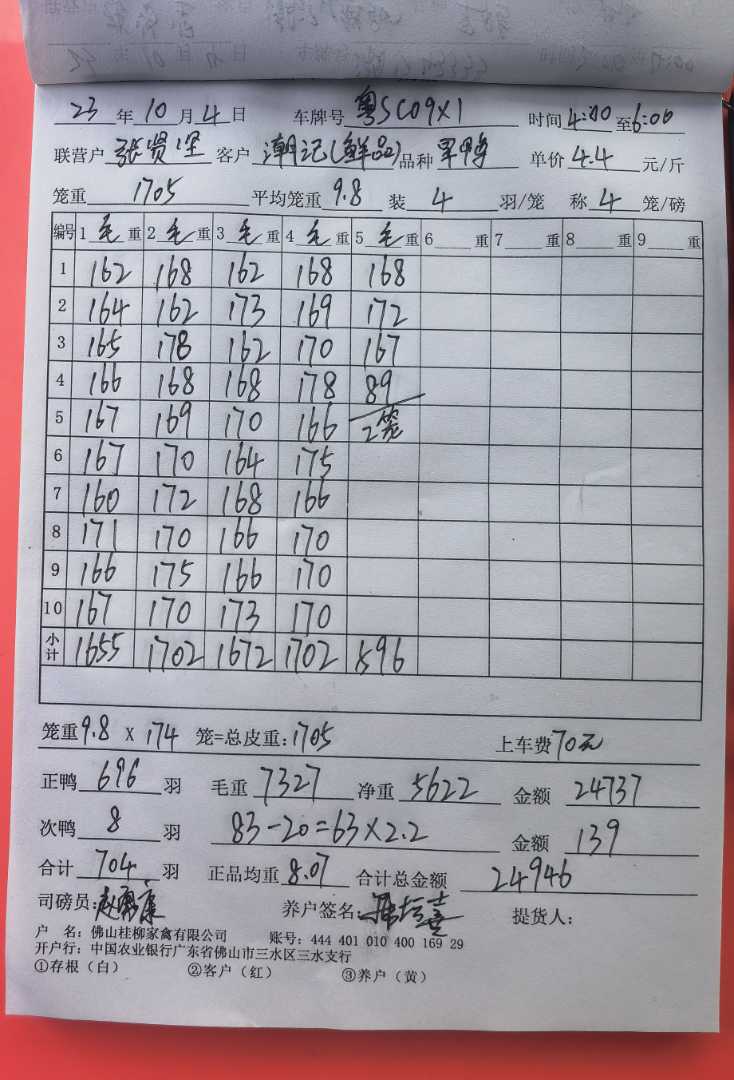 23 年 10 月 4 日 车牌号 粤SC09X1 时间 4:00 至 6:00
联营户 张贤坚 客户 潮记(鲜品) 品种 单价 4.4 元/斤
笼重 1705 平均笼重 9.8 装 4 羽/笼 称 4 笼/磅
编号 1 毛 重 2 毛 重 3 毛 重 4 毛 重 5 毛 重 6 重 7 重 8 重 9 重
1 162 168 162 168 168
2 164 162 173 169 172
3 165 178 162 170 167
4 166 168 168 178 89
5 167 169 170 166 2笼
6 167 170 164 175
7 160 172 168 166
8 171 170 166 170
9 166 175 166 170
10 167 170 173 170
小计 1655 1702 1672 1702 596
笼重 9.8 X 174 笼=总皮重: 1705 上车费 70元
正鸭 696 羽 毛重 7327 净重 5622 金额 24737
次鸭 8 羽 83-20=63X2.2 金额 139
合计 704 羽 正品均重 8.07 合计总金额 24946
司磅员: 养户签名: 提货人:
户 名: 佛山桂柳家禽有限公司 账号: 444 401 010 400 169 29
开户行: 中国农业银行广东省佛山市三水区三水支行
①存根（白） ②客户（红） ③养户（黄）